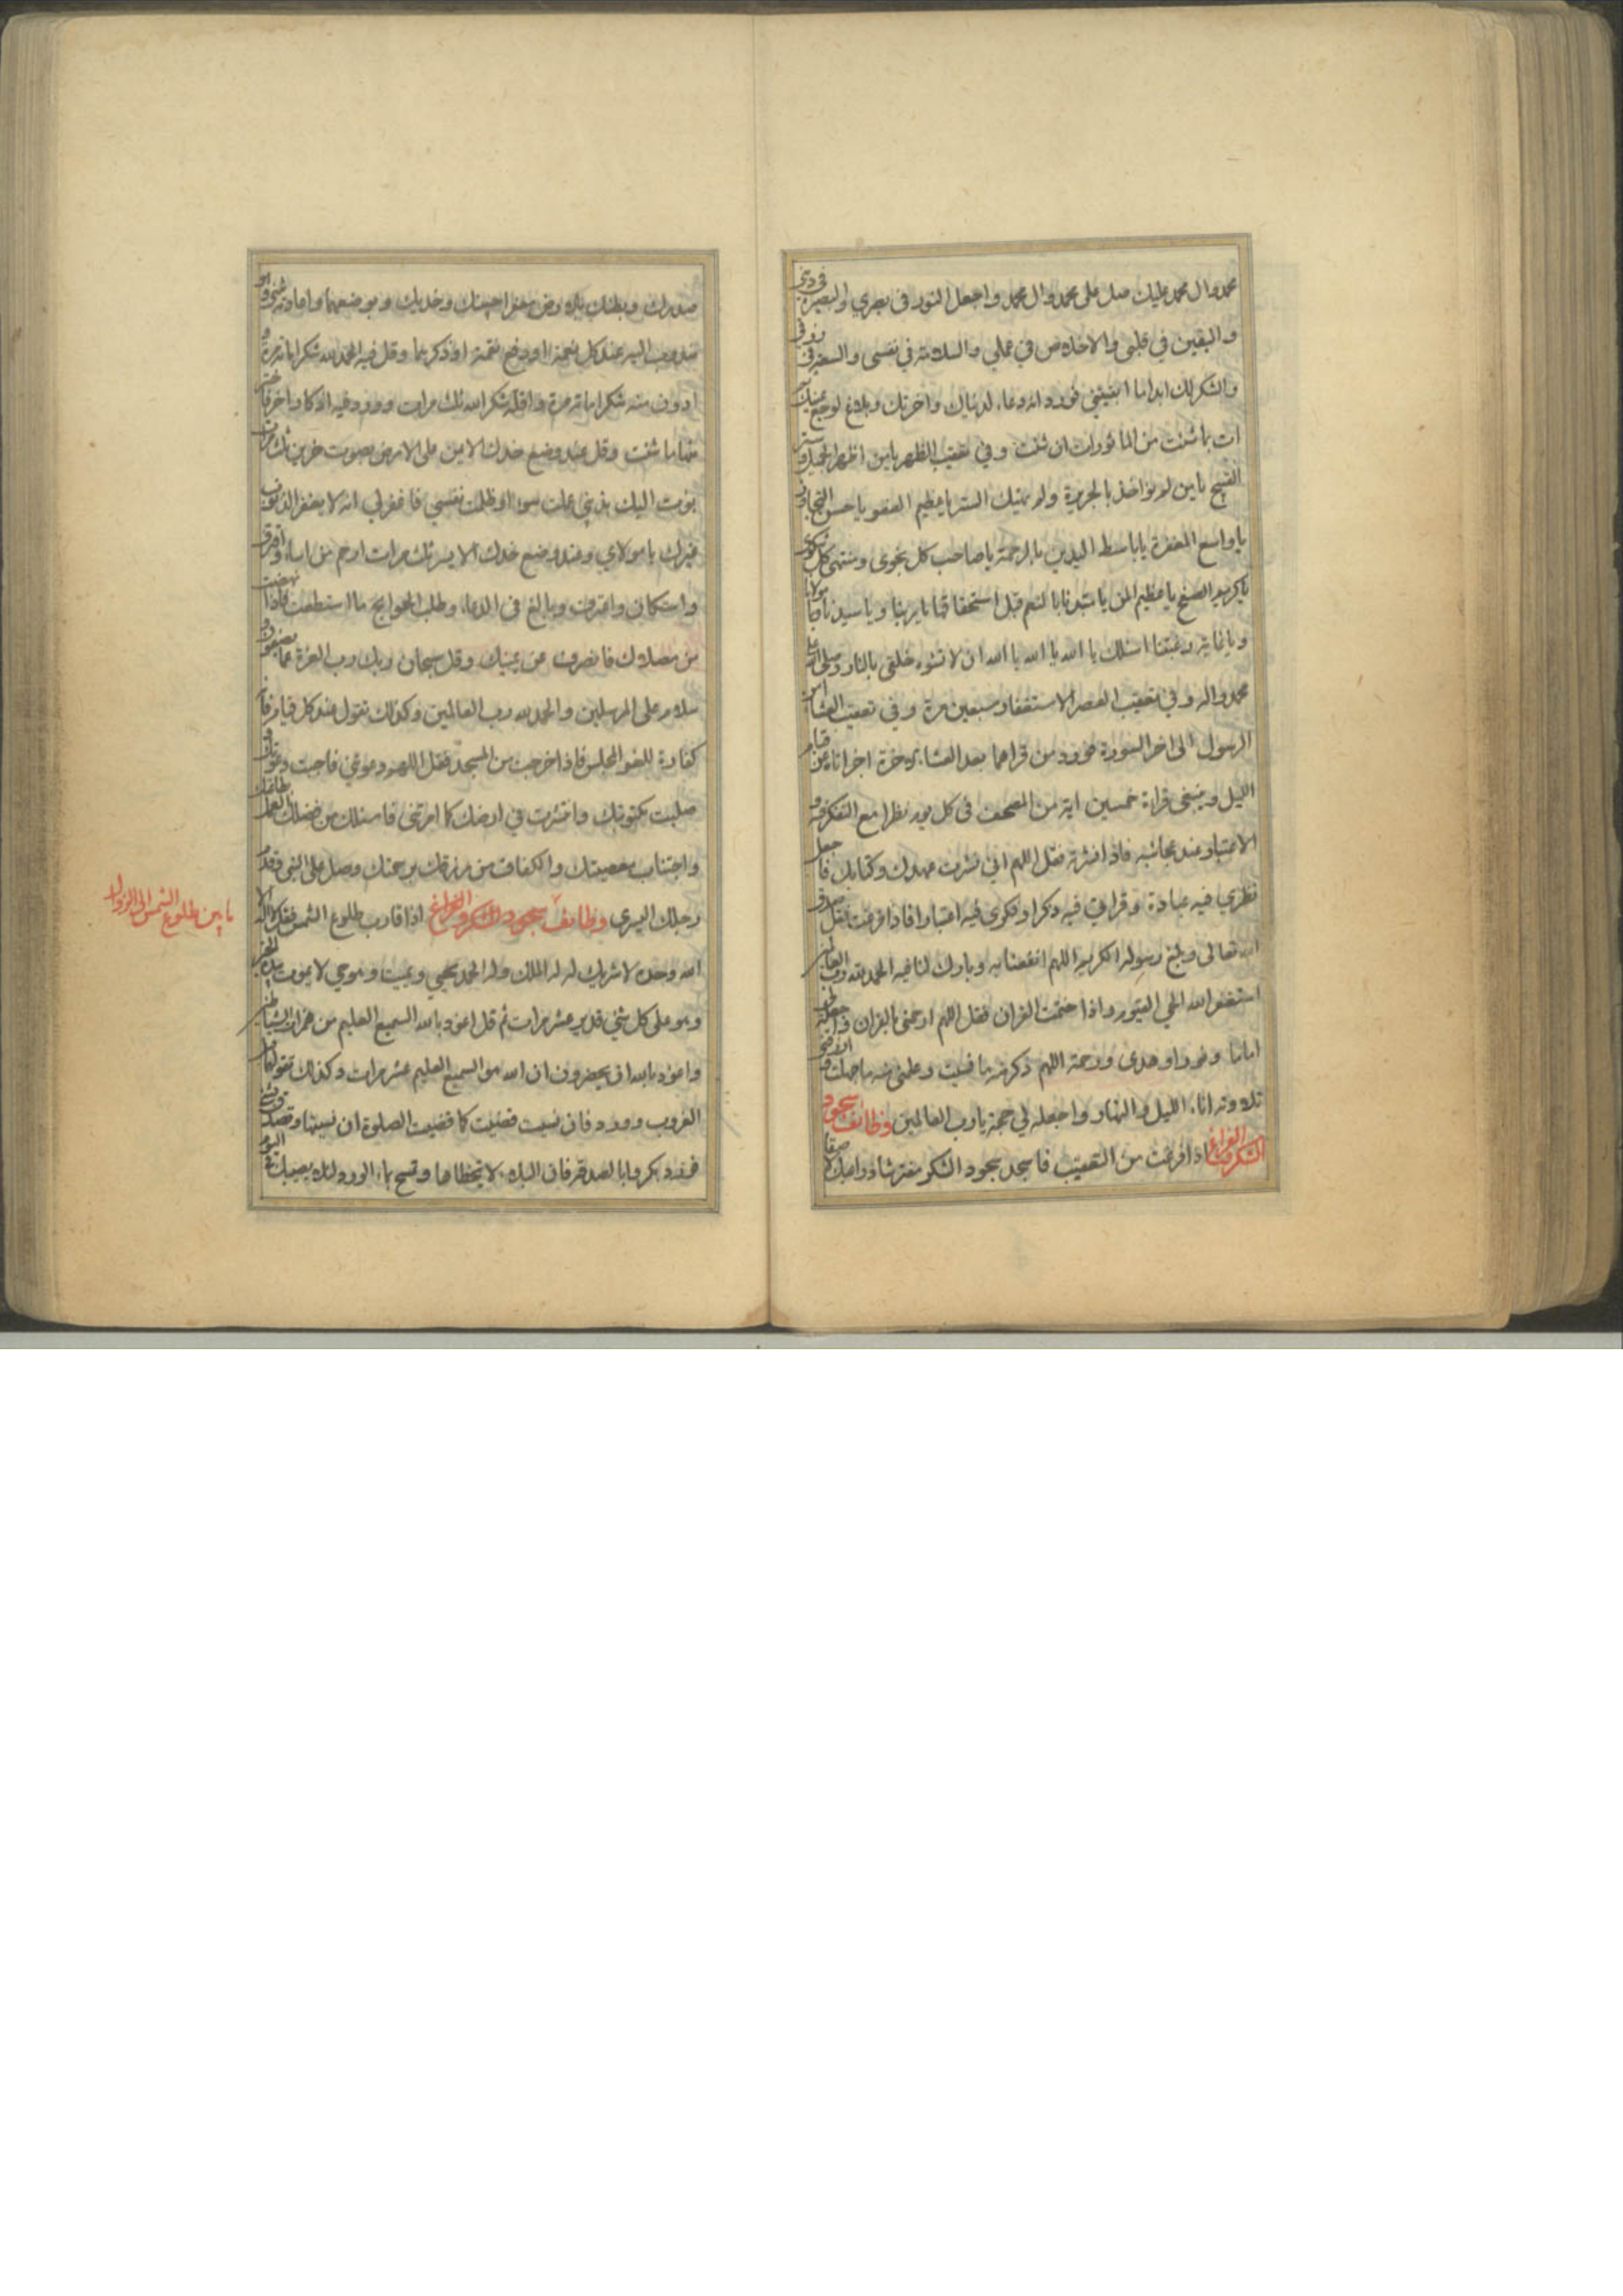 محمد وال محمد عليك صل على محمد وال محمد واجعل النور في بصري والبصيرة في ديني
واليقين في قلبي والاخلاص في عملي والسلامة في نفسي والسعة في رزقي
والشكر لك ابدا ما ابقيتني فورد انه دعاء لدنياك واخرتك وبلاغ لوجع عينيك ثم
ات بما شئت من الماثورات ان شئت وفي تعقيب الظهر يا من اظهر الجميل وستر
القبيح يا من لم يؤاخذ بالجريرة ولم يهتك الستر يا عظيم العفو يا حسن التجاوز
يا واسع المغفرة يا باسط اليدين بالرحمة يا صاحب كل نجوى ومنتهى كل شكوى
يا كريم الصفح يا عظيم المن يا مبتدئا بالنعم قبل استحقاقها يا ربنا ويا سيدنا يا مولانا
ويا غاية رغبتنا اسئلك يا الله يا الله يا الله ان لا تشوه خلقي بالنار وصلى الله على
محمد واله وفي تعقيب العصر الاستغفار سبعين مرة وفي تعقيب العشاء امن
الرسول الى اخر السورة فورد من قراهما بعد العشاء الاخرة اجزاتاه عن قيام
الليل وينبغي قراءة خمسين اية من المصحف في كل يوم نظرا مع التفكر فيه و
الاعتبار عند عجائبه فاذا نشرته فقل اللهم اني نشرت عهدك وكتابك فاجعل
نظري فيه عبادة وقراءتي فيه ذكرا وفكري فيه اعتبارا فاذا فرغت فقل صدق
الله تعالى وبلغ رسوله الكريم اللهم انفعنا به وبارك لنا فيه الحمد لله رب العالمين
استغفر الله الحي القيوم واذا ختمت القران فقل اللهم ارحمني بالقران واجعله لي
اماما ونورا وهدى ورحمة اللهم ذكرني منه ما نسيت وعلمني منه ما جهلت وارزقني
تلاوته اناء الليل والنهار واجعله لي حجة يا رب العالمين وظائف سجود
الشكر والفراغ اذا فرغت من التعقيب فاسجد سجود الشكر مفترشا ذراعيك لاصقا
صدرك وبطنك بالارض معفرا جبينك وخديك وموضعهما
مندوب اليه عند كل نعمة او دفع نقمة او ذكرهما وقل فيه الحمد لله شكرا مائة مرة و
ادون منه شكرا مائة مرة واقله شكرا لله ثلث مرات وورد فيه اذكار اخر فاختر
منها ما شئت وقل عند وضع خدك الايمن على الارض بصوت حزين ثلث مرات
بؤت اليك بذنبي عملت سوءا وظلمت نفسي فاغفر لي انه لا يغفر الذنوب
غيرك يا مولاي وعند وضع خدك الايسر ثلث مرات ارحم من اساء واقترف
واستكان واعترف وبالغ في الدعاء وطلب الحوايج ما استطعت فاذا نهضت
من مصلاك فانصرف عن يمينك وقل سبحان ربك رب العزة عما يصفون و
سلام على المرسلين والحمد لله رب العالمين وكذلك تقول عند كل قيام فانه
كفارة للغو المجلس فاذا خرجت من المسجد فقل اللهم دعوتني فاجبت دعوتك و
صليت مكتوبتك وانتشرت في ارضك كما امرتني فاسئلك من فضلك العمل بطاعتك
واجتناب معصيتك والكفاف من رزقك برحمتك وصل على النبي وقدم
رجلك اليسرى وظائف سجود الشكر والفراغ اذا قارب طلوع الشمس فقل لا اله الا
الله وحده لا شريك له له الملك وله الحمد يحيي ويميت وهو حي لا يموت بيده الخير
وهو على كل شئ قدير عشر مرات ثم قل اعوذ بالله السميع العليم من همزات الشياطين
واعوذ بالله ان يحضرون ان الله هو السميع العليم عشر مرات وكذلك تقولها قبل
الغروب وورد فان نسيت قضيت كما قضيت الصلوة ان نسيتها وتصدق بشئ
فورد بكروا بالصدقة فان البلاء لا يتخطاها وتمسح بماء الورد لئلا يصيبك في اليوم
ما بين طلوع الشمس الى الزوال